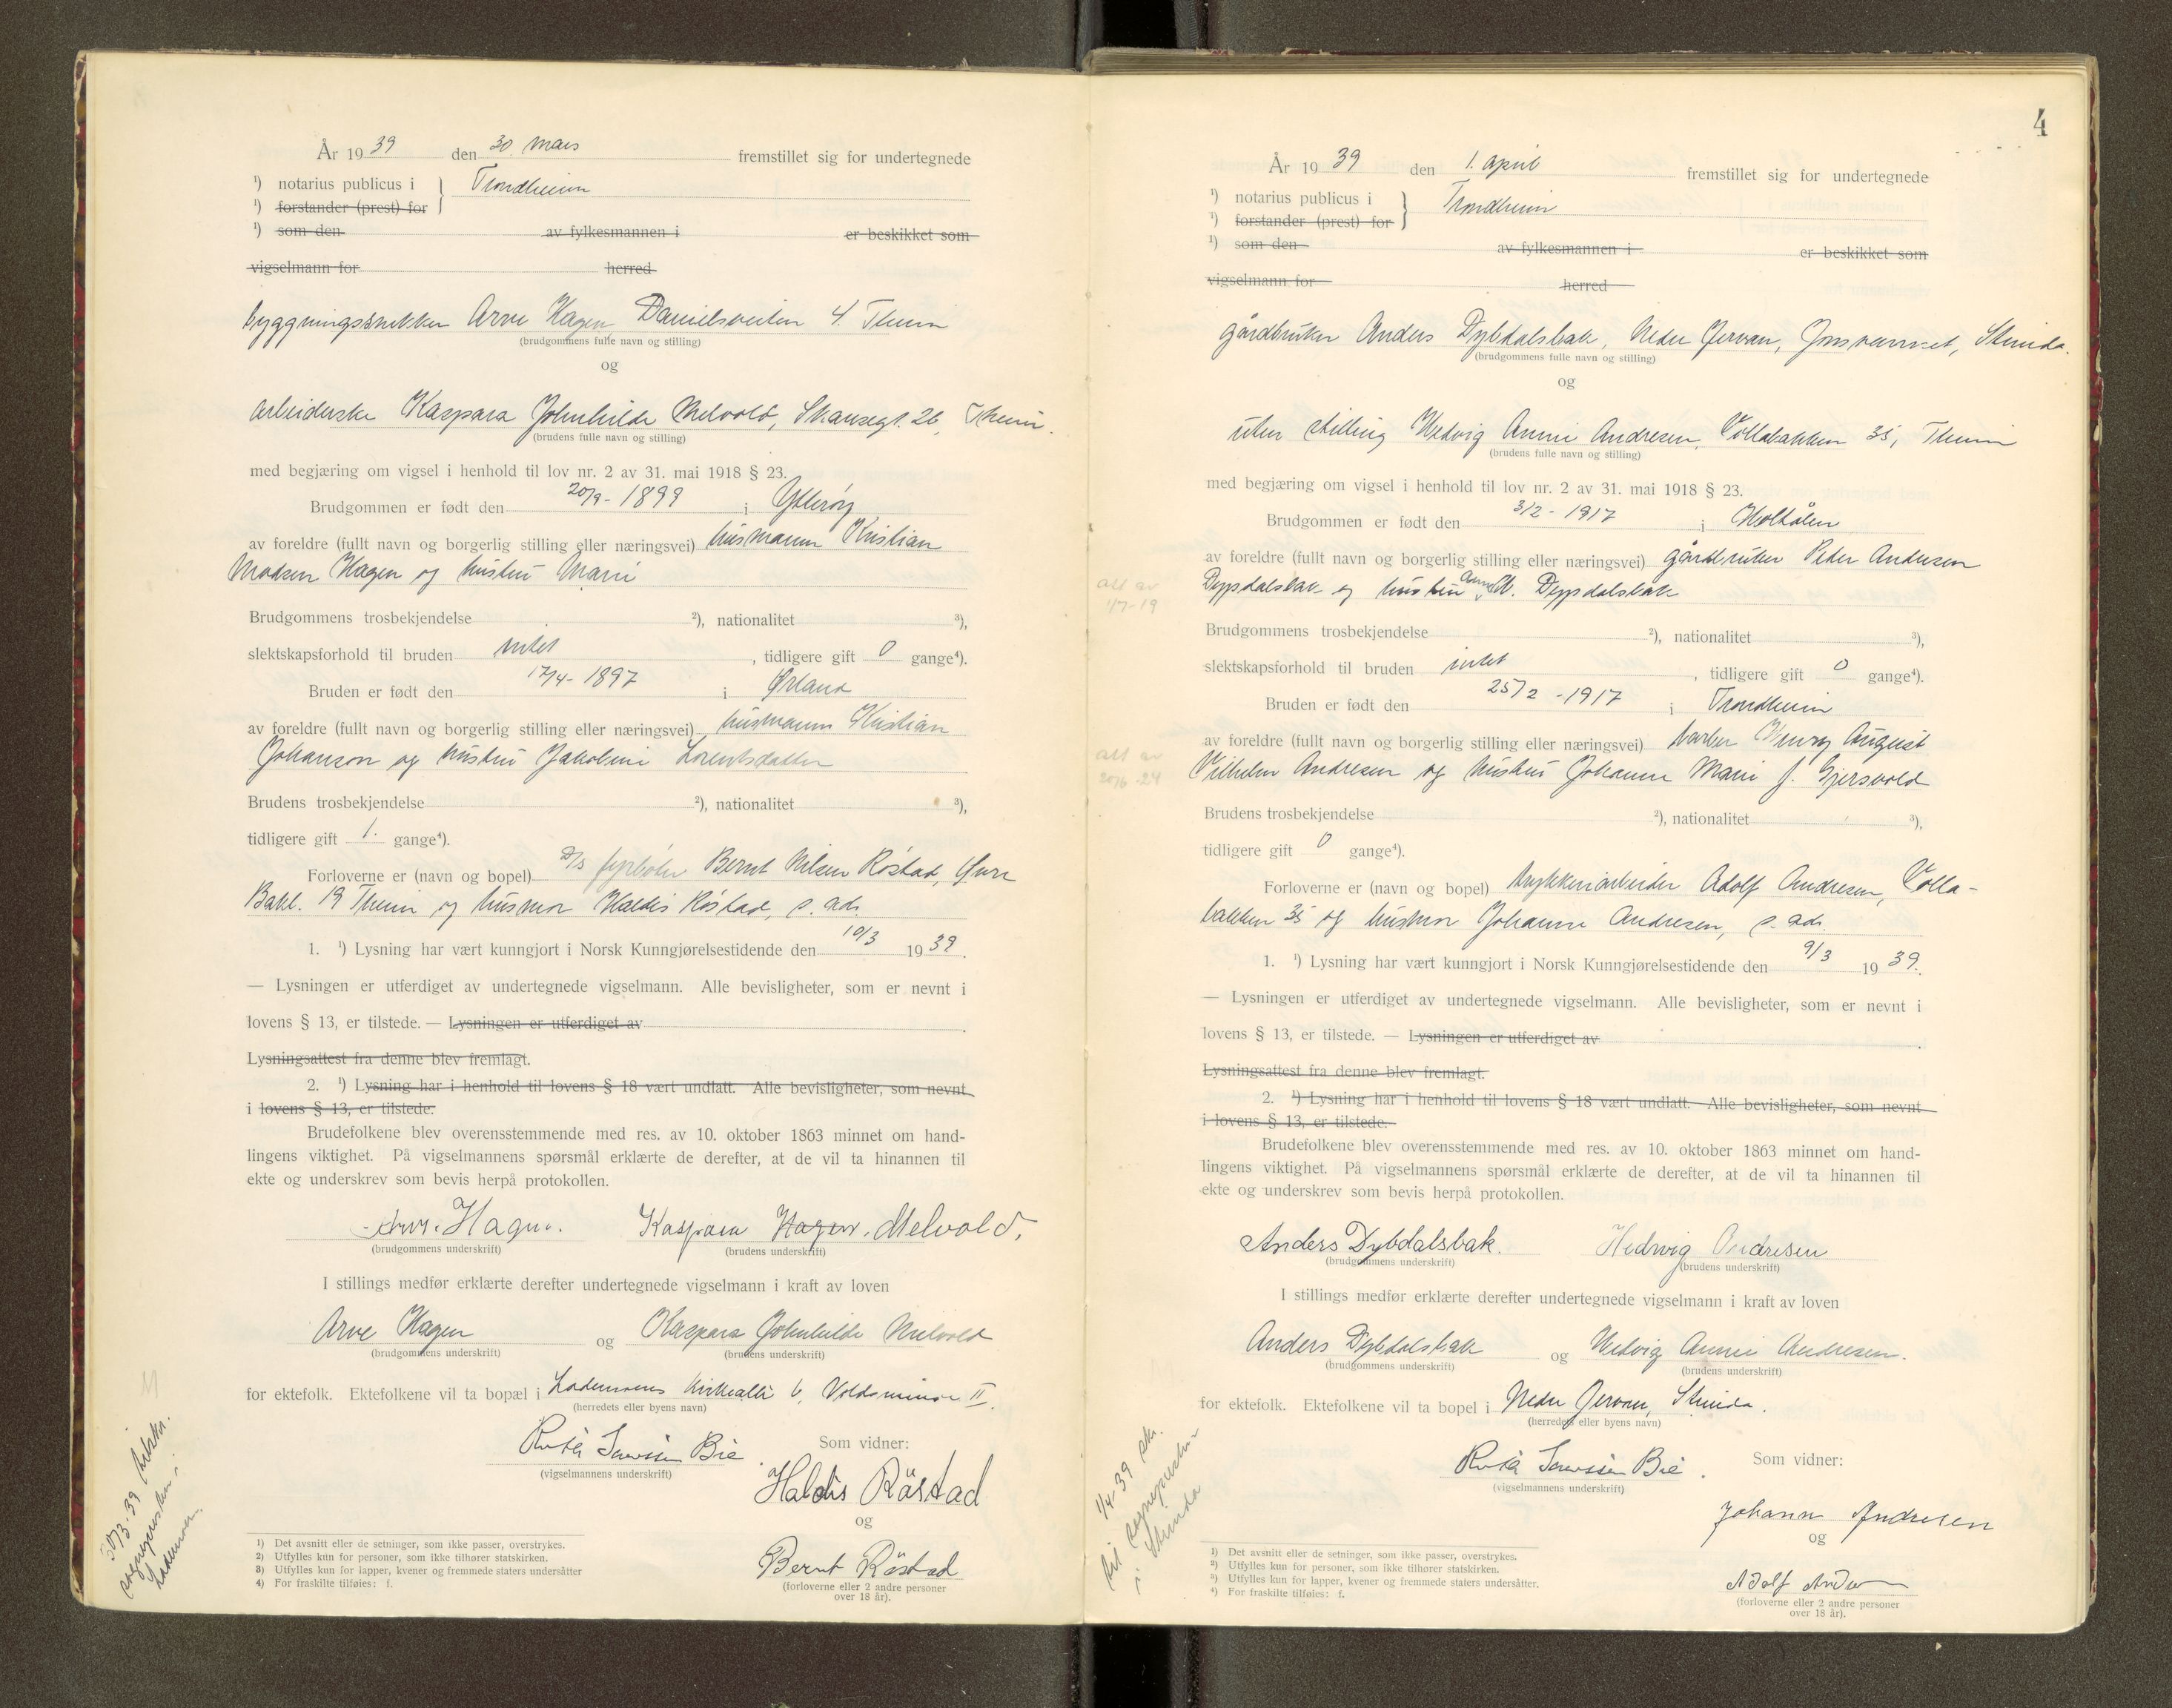 År 1939 den 30. mars fremstillet sig for undertegnede
¹) notarius publicus i } Trondheim
¹) forstander (prest) for
¹) som den av fylkesmannen i er beskikket som
vigselmann for herred
bygningssnekker Arve Hagen, Danielsveiten 4. Theim
(brudgommens fulle navn og stilling)
og
arbeiderske Kaspara Johnhilde Melvold, Skansegt. 26, Theim.
(brudens fulle navn og stilling)
med begjæring om vigsel i henhold til lov nr. 2 av 31. mai 1918 § 23.
Brudgommen er født den 20/9 - 1899 i Ytterøy
av foreldre (fullt navn og borgerlig stilling eller næringsvei) husmann Kristian
Madsen Hagen og hustru Marie
Brudgommens trosbekjendelse ²), nationalitet ³),
slektskapsforhold til bruden intet , tidligere gift 0 gange⁴).
Bruden er født den 17/4 - 1897 i Ørland
av foreldre (fullt navn og borgerlig stilling eller næringsvei) husmann Kristian
Johanson og hustru Jakobine Lorentsdatter
Brudens trosbekjendelse ²), nationalitet ³),
tidligere gift 1. gange⁴).
Forloverne er (navn og bopel) fyrbøter Bernt Nilsen Röstad,
Bakl. 19 Theim og husmor Haldis Röstad, s. adr.
1. ¹) Lysning har vært kunngjort i Norsk Kunngjørelsestidende den 10/3 1939.
— Lysningen er utferdiget av undertegnede vigselmann. Alle bevisligheter, som er nevnt i
lovens § 13, er tilstede. — Lysningen er utferdiget av .
Lysningsattest fra denne blev fremlagt.
2. ¹) Lysning har i henhold til lovens § 18 vært undlatt. Alle bevisligheter, som nevnt
i lovens § 13, er tilstede.
Brudefolkene blev overensstemmende med res. av 10. oktober 1863 minnet om hand-
lingens viktighet. På vigselmannens spørsmål erklærte de derefter, at de vil ta hinannen til
ekte og underskrev som bevis herpå protokollen.
Arve Hagen. Kaspara Hagen. Melvold.
(brudgommens underskrift) (brudens underskrift)
I stillings medfør erklærte derefter undertegnede vigselmann i kraft av loven
Arve Hagen og Kaspara Johnhilde Melvold
(brudgommens underskrift) (brudens underskrift)
for ektefolk. Ektefolkene vil ta bopæl i Lademoens kirkeallé 6, Voldsminne II.
(herredets eller byens navn)
Bie.
(vigselmannens underskrift)
Som vidner:
Haldis Röstad
og
Bernt Röstad
(forloverne eller 2 andre personer
over 18 år).
30/3-39 tilskr.
sognepresten i
Lademoen.
¹) Det avsnitt eller de setninger, som ikke passer, overstrykes.
²) Utfylles kun for personer, som ikke tilhører statskirken.
³) Utfylles kun for lapper, kvener og fremmede staters undersåtter
⁴) For fraskilte tilføies: f.
4
År 1939 den 1. april fremstillet sig for undertegnede
¹) notarius publicus i } Trondheim
¹) forstander (prest) for
¹) som den av fylkesmannen i er beskikket som
vigselmann for herred
gårdbruker Anders Dybdalsbak, Nedre Jervan, Jonsvannet, Strinda.
(brudgommens fulle navn og stilling)
og
uten stilling Hedvig Annie Andresen, Vollabakken 35, Theim
(brudens fulle navn og stilling)
med begjæring om vigsel i henhold til lov nr. 2 av 31. mai 1918 § 23.
Brudgommen er født den 3/2 - 1917 i Holtålen
av foreldre (fullt navn og borgerlig stilling eller næringsvei) gårdbruker Peder Andersen
Dypdalsbak og hustru Dypdalsbak
att av
1/7-19
Brudgommens trosbekjendelse ²), nationalitet ³),
slektskapsforhold til bruden intet , tidligere gift 0 gange⁴).
Bruden er født den 25/2 - 1917 i Trondheim
av foreldre (fullt navn og borgerlig stilling eller næringsvei) barber Henry August
Vilhelm Andresen og hustru Johanne Marie f. Gjersvold
att av
20/6-24
Brudens trosbekjendelse ²), nationalitet ³),
tidligere gift 0 gange⁴).
Forloverne er (navn og bopel) trykkeriarbeider Adolf Andresen, Volla-
bakken 35 og husmor Johanne Andresen, s. adr.
1. ¹) Lysning har vært kunngjort i Norsk Kunngjørelsestidende den 9/3 1939.
— Lysningen er utferdiget av undertegnede vigselmann. Alle bevisligheter, som er nevnt i
lovens § 13, er tilstede. — Lysningen er utferdiget av .
Lysningsattest fra denne blev fremlagt.
2. ¹) Lysning har i henhold til lovens § 18 vært undlatt. Alle bevisligheter, som nevnt
i lovens § 13, er tilstede.
Brudefolkene blev overensstemmende med res. av 10. oktober 1863 minnet om hand-
lingens viktighet. På vigselmannens spørsmål erklærte de derefter, at de vil ta hinannen til
ekte og underskrev som bevis herpå protokollen.
Anders Dybdalsbak. Hedvig Andresen
(brudgommens underskrift) (brudens underskrift)
I stillings medfør erklærte derefter undertegnede vigselmann i kraft av loven
Anders Dybdalsbak og Hedvig Annie Andresen.
(brudgommens underskrift) (brudens underskrift)
for ektefolk. Ektefolkene vil ta bopel i Nedre Jervan, Strinda.
(herredets eller byens navn)
Bie.
(vigselmannens underskrift)
Som vidner:
Johanne Andresen
og
Adolf Andresen
(forloverne eller 2 andre personer
over 18 år).
1/4-39 skr.
til sognepresten
i Strinda
¹) Det avsnitt eller de setninger, som ikke passer, overstrykes.
²) Utfylles kun for personer, som ikke tilhører statskirken.
³) Utfylles kun for lapper, kvener og fremmede staters undersåtter.
⁴) For fraskilte tilføies: f.